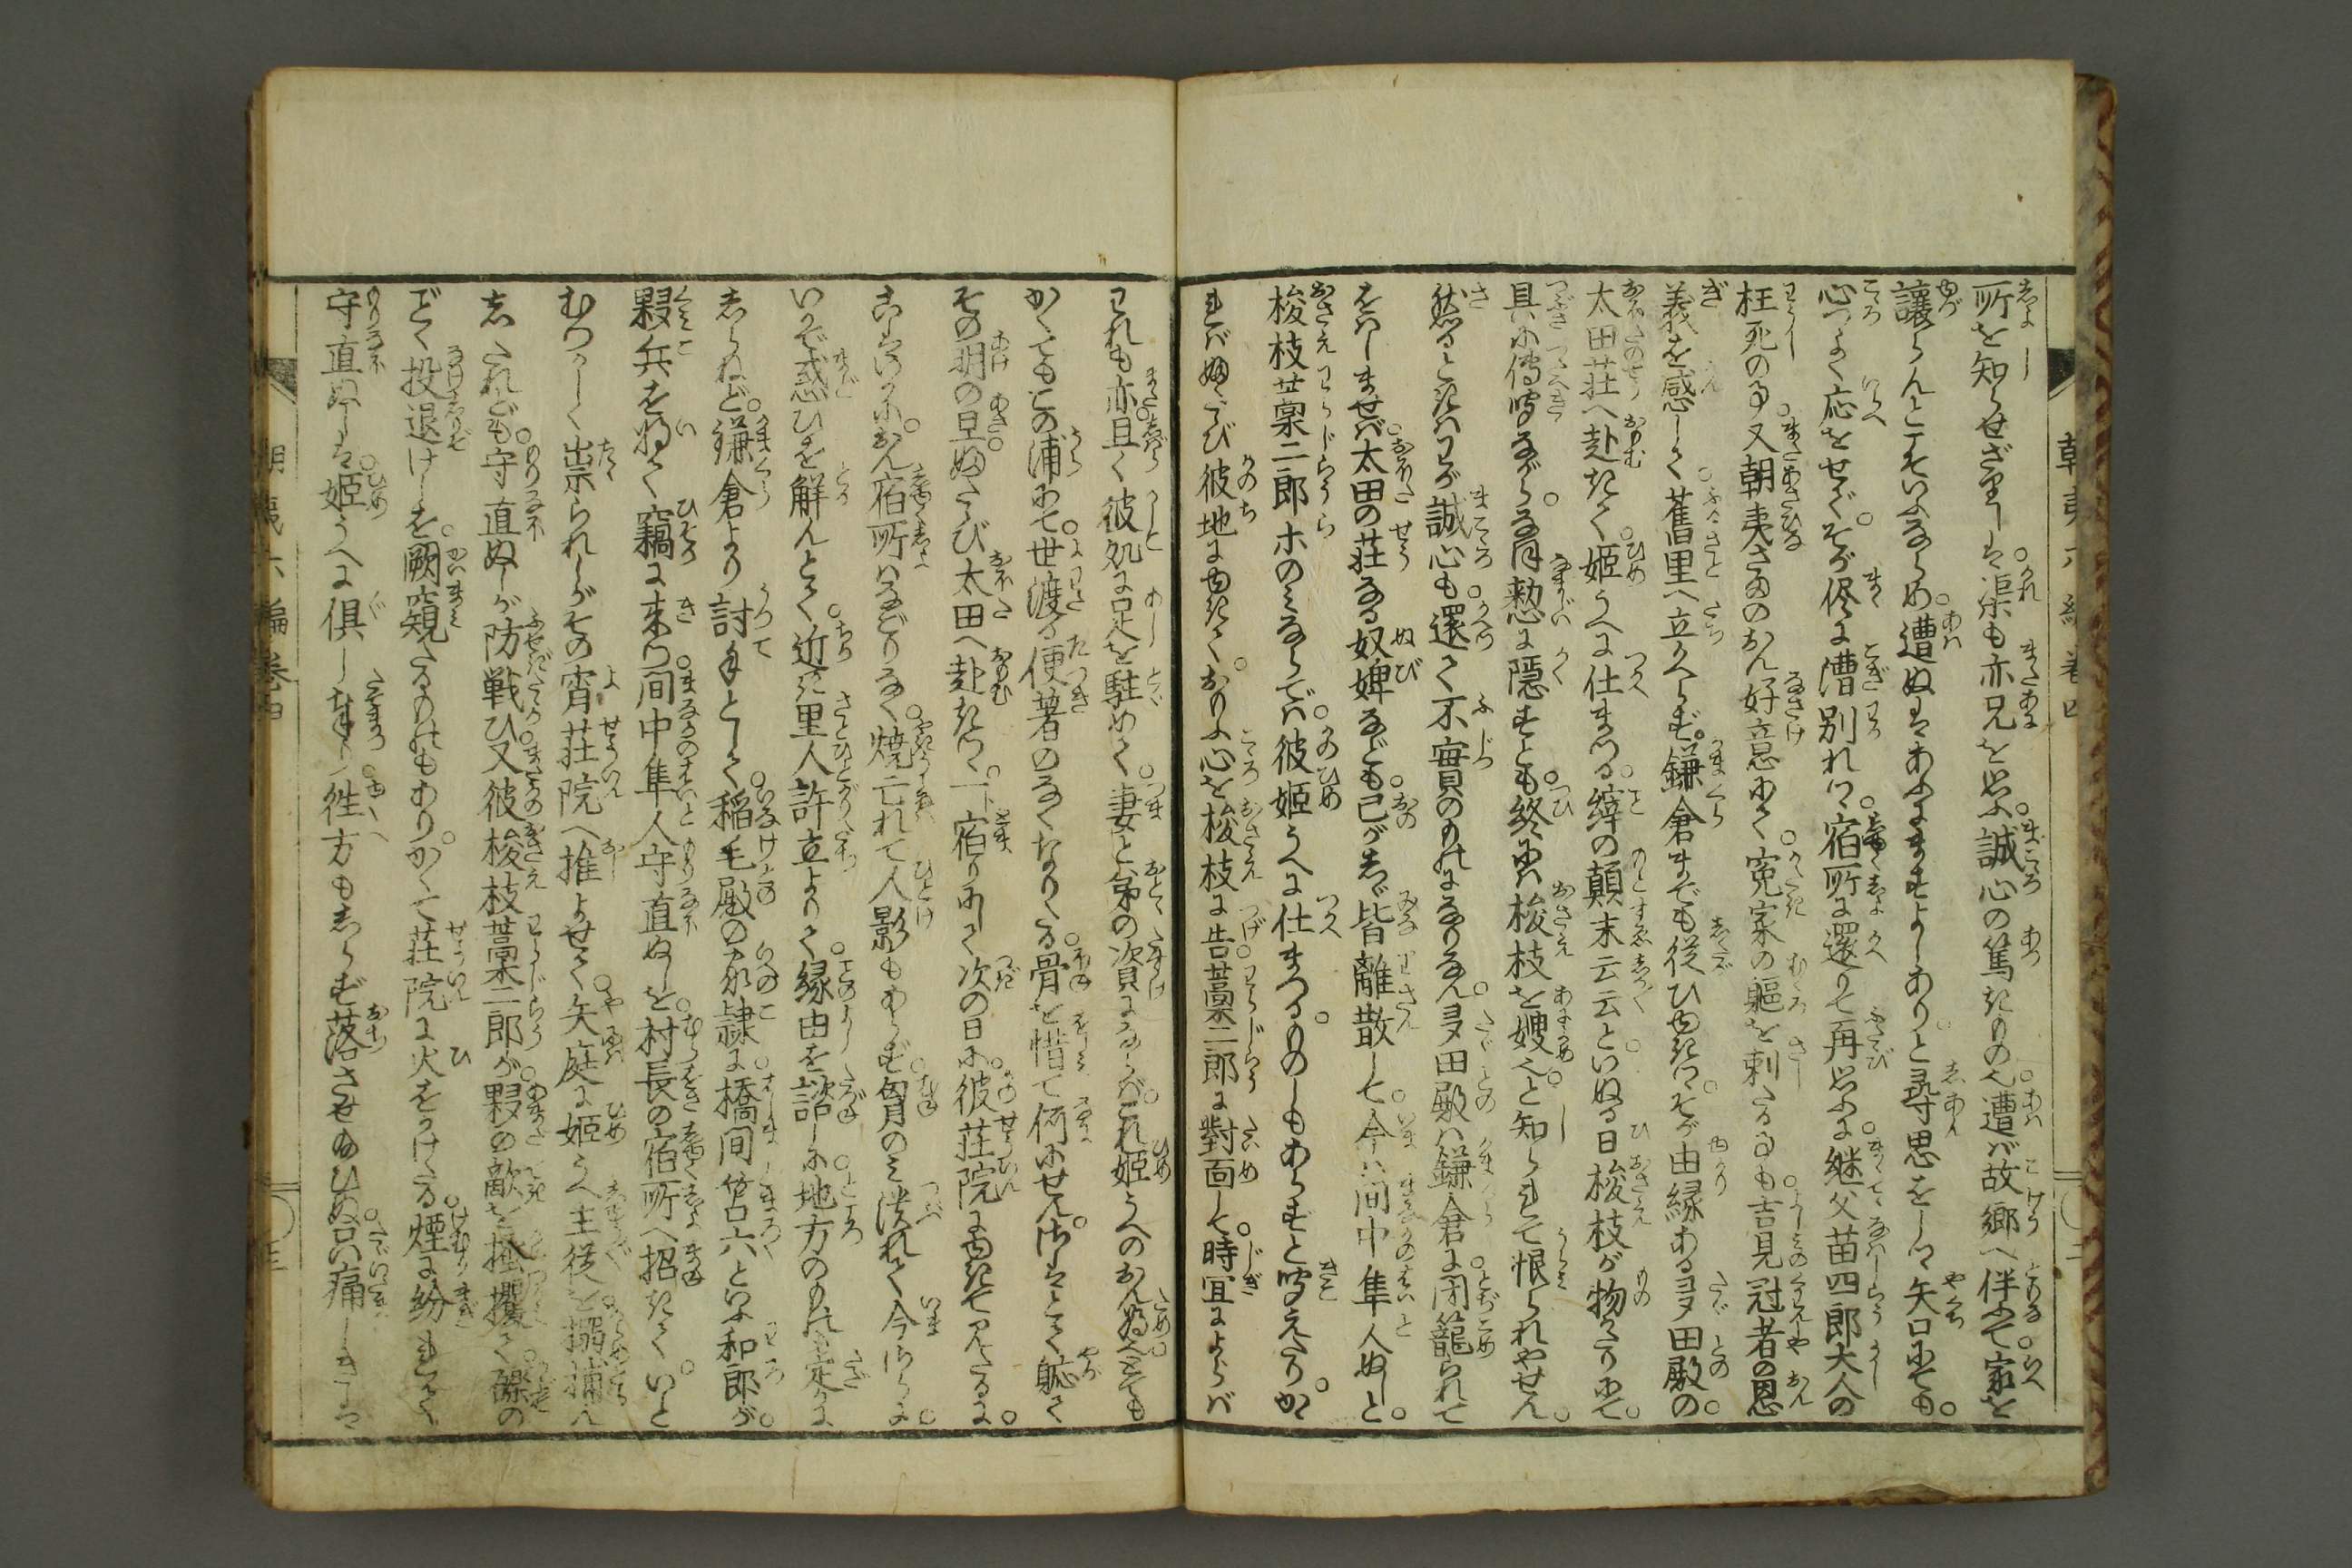 所を知らせざりしは。渠も亦兄を思ふ。誠心の篤きもの也。遭ば故郷へ伴ふて。家を
讓らんとこそいふならめ。遭ぬはあふにますよしありと尋思をしつ。矢口にても。
心つよく応をせず。そが侭に漕別れつ。宿所に還りて再思ふに。継父苗四郎大人の
枉死の事。又朝夷さまのおん好意にて。寃家の軀を刺たる事も。吉見冠者の恩
義を感して。舊里へ立かへらず。鎌倉までも従ひゆきつ。そが由縁ある多田殿の。
太田荘へ赴きて。姫うへに仕まつる。縡の顛末云云といぬる日梭枝が物かたりにて。
具に傳聞ながら。なほ憖に隠すとも。終には梭枝を嫂也と知られて恨られやせん。
然るときはわが誠心も。還て不實のものになりなん。多田殿は鎌倉に。閉籠られて
をはしませば。太田の荘なる奴婢なども。己がまゝ皆離散して。今は間中隼人ぬしと。
梭枝藁二郎等のみならでは。彼姫うへに仕まつるものしもあらずと聞えたり。か
ればふたゝび彼地にゆきて。おりふし心を梭枝に告。藁二郎に對面して。時宜によらば
われも亦。且く彼処に足を駐めて。妻と弟の資にならば。これ姫うへのおん為也。とても
かくてもこの浦にて。世渡る便著のなくなりたる。骨を惜て何にせん。さはとて軈て
その明の旦。ふたゝび太田へ赴きつ。一ト宿りして次の日に。彼荘院にゆきて見たるに。
こはいかに。おん宿所はなごりなく。焼亡れて人影もあらず。胸のみ潰れて今さらに。
いかで惑ひを解んとて。近き里人許立よりて。縁由を諮しに。地方のものも定かに
しらねど。鎌倉より討手として。稲毛殿の家隷に。橋間筥六といふ和郎が。
夥兵を将て竊に来つ。間中隼人守直ぬしを。村長の宿所へ招きて。いと
むつかしく祟られしがその宵荘院へ推よせて。矢庭に姫うへ主従を搦捕ん
としたれども。守直ぬしが防戦ひ。又彼梭枝藁二郎が。夥の敵を掻攫て。礫の
ごとく投退けしを。闕窺たるものもあり。かくて荘院に火をかけたる。煙に紛れて
守直ぬしは。姫うへに俱しまゐらして。往方もしらず落させ給ひぬ。いと痛ましきは
朝夷六編巻四